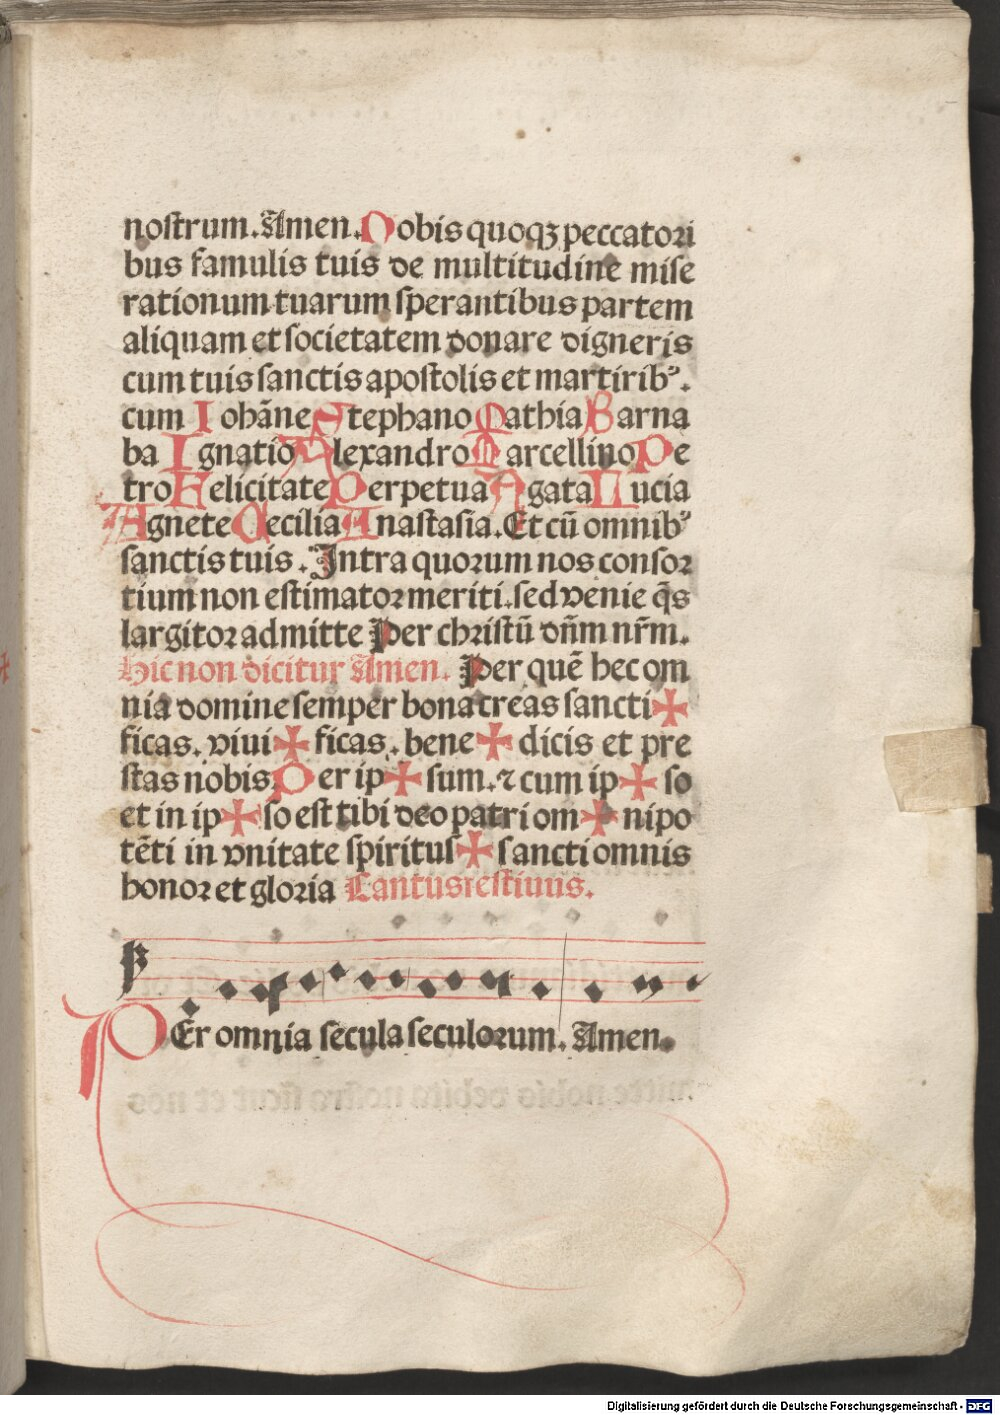 nostrum. Amen. Nobis quoqꝫ peccatori
bus famulis tuis de multitudine mise
rationum tuarum sperantibus partem
aliquam et societatem donare digneris
cum tuis sanctis apostolis et martiribꝰ.
cum Iohãne Stephano Mathia Barna
ba Ignatio Alexandro Marcellino Pe
tro Felicitate Perpetua Agata Lucia
Agnete Cecilia Anastasia. Et cũ omnibꝰ
sanctis tuis. Intra quorum nos consor
tium non estimator meriti. sed venie q̃s
largitor admitte Per christũ dñm nr̃m.
Hic non dicitur Amen. Per quẽ hec om
nia domine semper bona creas sancti✠
ficas. viui✠ficas. bene✠dicis et pre
stas nobis Per ip✠sum. ⁊ cum ip✠so
et in ip✠so est tibi deo patri om✠nipo
tẽti in vnitate spiritus✠sancti omnis
honor et gloria Cantus festiuus.
PEr omnia secula seculorum. Amen.
Digitalisierung gefördert durch die Deutsche Forschungsgemeinschaft - DFG